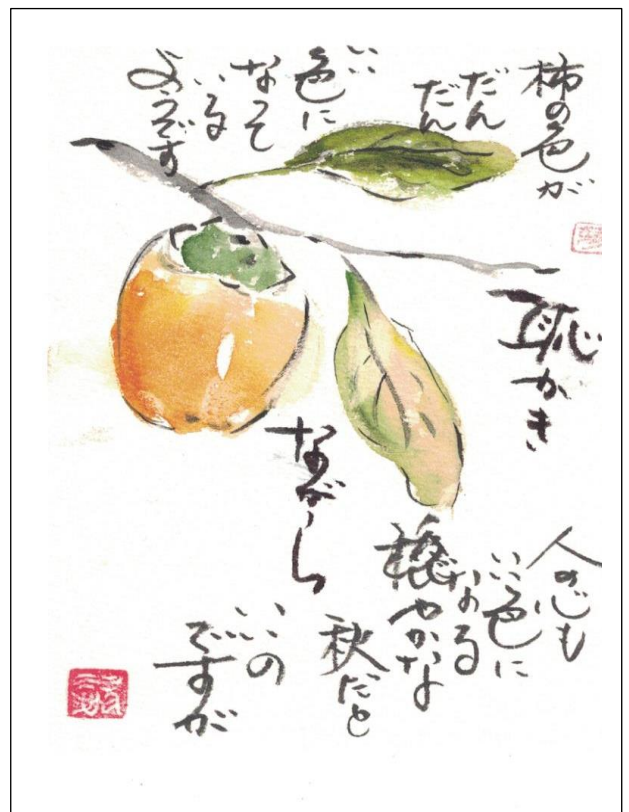 柿の色が
だんだん
だん
いい
色に
なって
いる
ようです
恥かき
ながら
人の心も
いい色に
なる
穏やかな
秋だと
いいの
ですが